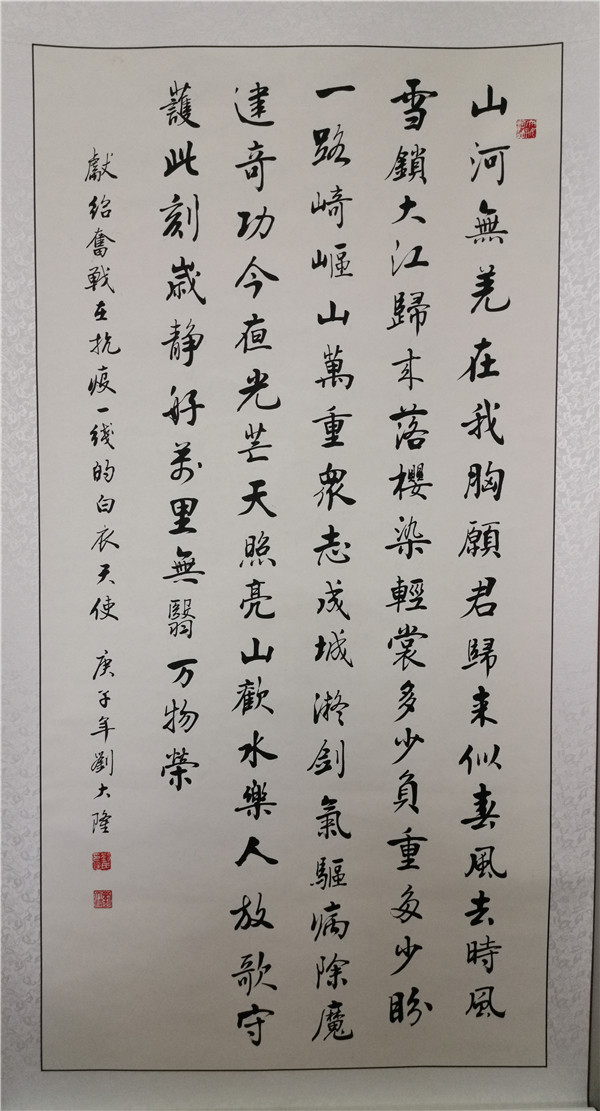 山河無羌在我胸願君歸来似春風去時風
雪鎖大江歸来落櫻染輕裳多少負重多少盼
一路崎嶇山萬重衆志成城凝剑氣驅病除魔
建奇功今夜光芒天照亮山歡水樂人放歌守
護此刻歲静好万里無翳万物榮
獻给奮戰在抗疫一线的白衣天使 庚子年劉大隆